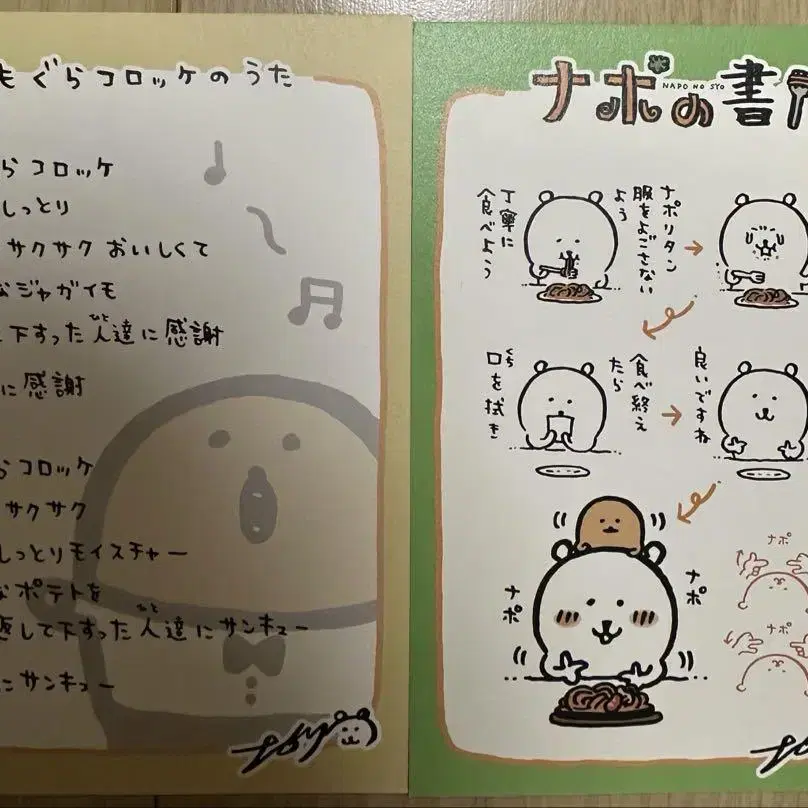 もぐらコロッケのうた
らコロッケ
しっとり
サクサク おいしくて
なジャガイモ
て下すった人達に感謝
ひと
に感謝
らコロッケ
サクサク
しっとりモイスチャー
なポテトを
返して下すった人達にサンキュー
ひと
にサンキュー
ナポの書
NAPO NO SYO
ナポリタン
服をよごさない
よう
丁寧に
食べよう
食べ終え
たら
口を拭き
くち
良いですね
ナポ
ナポ
ナポ
ナポ